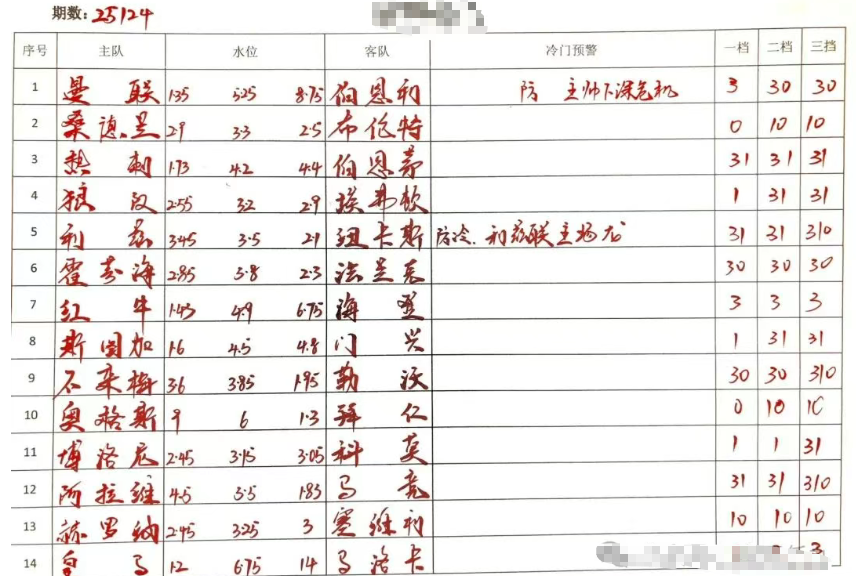 期数：25124
序号 主队 水位 客队 冷门预警 一档 二档 三挡
1 曼联 1.35 5.25 8.75 伯恩利 防 主帅下深危机 3 30 30
2 桑德兰 2.9 3.3 2.5 布伦特 0 10 10
3 热刺 1.73 4.2 4.4 伯恩茅 31 31 31
4 狼汉 2.55 3.2 2.9 埃弗顿 1 31 31
5 利兹 3.45 3.5 2.1 纽卡斯 防冷．利兹联主场龙 31 31 310
6 霍芬海 2.85 3.8 2.3 法兰克 30 30 30
7 红牛 1.43 4.9 6.75 海登 3 3 3
8 斯图加 1.6 4.5 4.8 门兴 1 31 31
9 不来梅 3.6 3.85 1.95 勒沃 30 30 310
10 奥格斯 9 6 1.3 拜仁 0 10 10
11 博洛尼 2.45 3.15 3.05 科莫 1 1 31
12 阿拉维 4.5 3.5 1.83 马竞 31 31 310
13 赫罗纳 2.45 3.25 3 塞维利 10 10 10
14 皇马 1.2 6.75 14 马洛卡 3